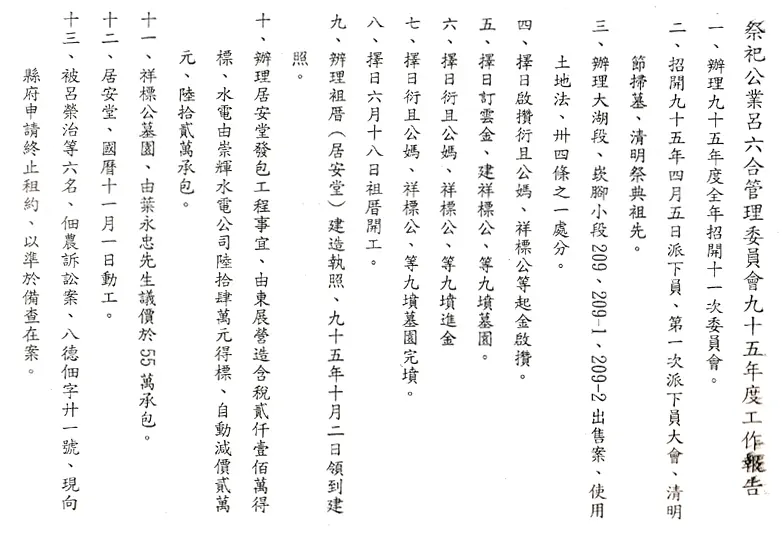 祭祀公業呂六合管理委員會九十五年度工作報告
一、辦理九十五年度全年招開十一次委員會。
二、招開九十五年四月五日派下員、第一次派下員大會、清明
節掃墓、清明祭典祖先。
三、辦理大湖段、崁腳小段209、209-1、209-2出售案、使用
土地法、卅四條之一處分。
四、擇日啟攢衍且公媽、祥標公等起金啟攢。
五、擇日訂雲金、建祥標公、等九墳墓園。
六、擇日衍且公媽、祥標公、等九墳進金
七、擇日衍且公媽、祥標公、等九墳墓園完墳。
八、擇日六月十八日祖厝開工。
九、辦理祖厝（居安堂）建造執照、九十五年十月二日領到建
照。
十、辦理居安堂發包工程事宜、由東展營造含稅貳仟壹佰萬得
標、水電由崇輝水電公司陸拾肆萬元得標、自動減價貳萬
元、陸拾貳萬承包。
十一、祥標公墓園、由葉永忠先生議價於55萬承包。
十二、居安堂、國曆十一月一日動工。
十三、被呂榮治等六名、佃農訴訟案、八德佃字廿一號、現向
縣府申請終止租約、以準於備查在案。